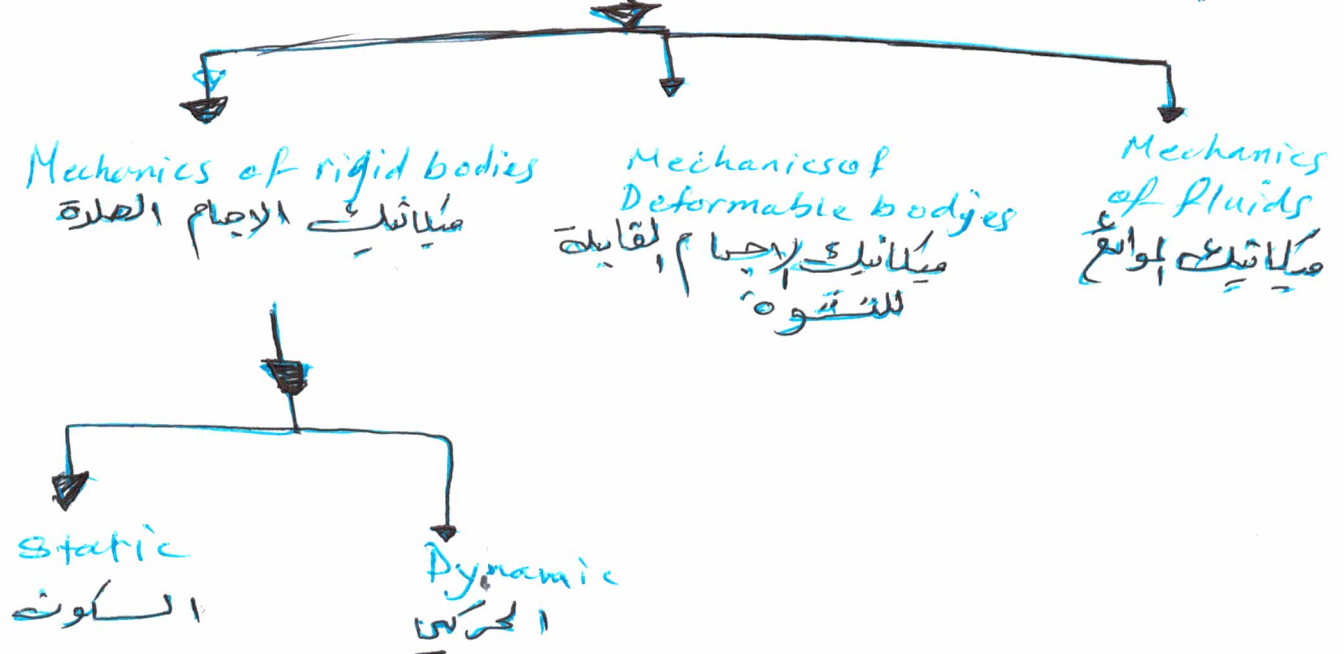 Mechanics of rigid bodies
ميكانيك الاجسام الصلدة
Mechanics of
Deformable bodyes
ميكانيك الاجسام القابلة
للتشوه
Mechanics
of fluids
ميكانيك الموائع
Static
السكون
Dynamic
الحركي